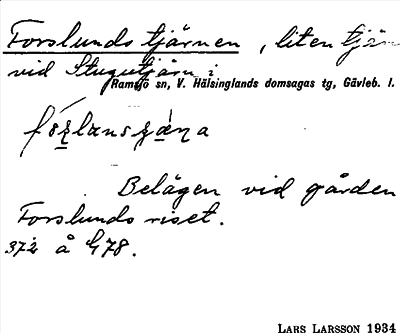 Forslundstjärnen, liten tjärn
vid Stugutjärn i
Ramsjö sn, V. Hälsinglands domsagas tg, Gävleb. l.
Belägen vid gården
Forslundsriset.
372 å G78.
LARS LARSSON 1934